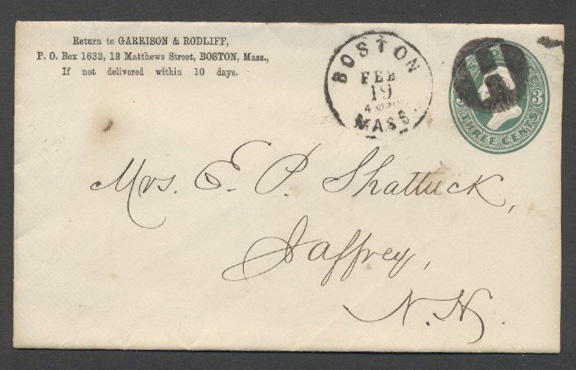 Return to GARRISON & RODLIFF,
P. O. Box 1633, 13 Matthews Street, BOSTON, Mass.,
If not delivered within 10 days.
BOSTON
FEB
19
MASS.
3 THREE CENTS 3
Mrs. E. P. Shattuck,
Jaffrey,
N. H.